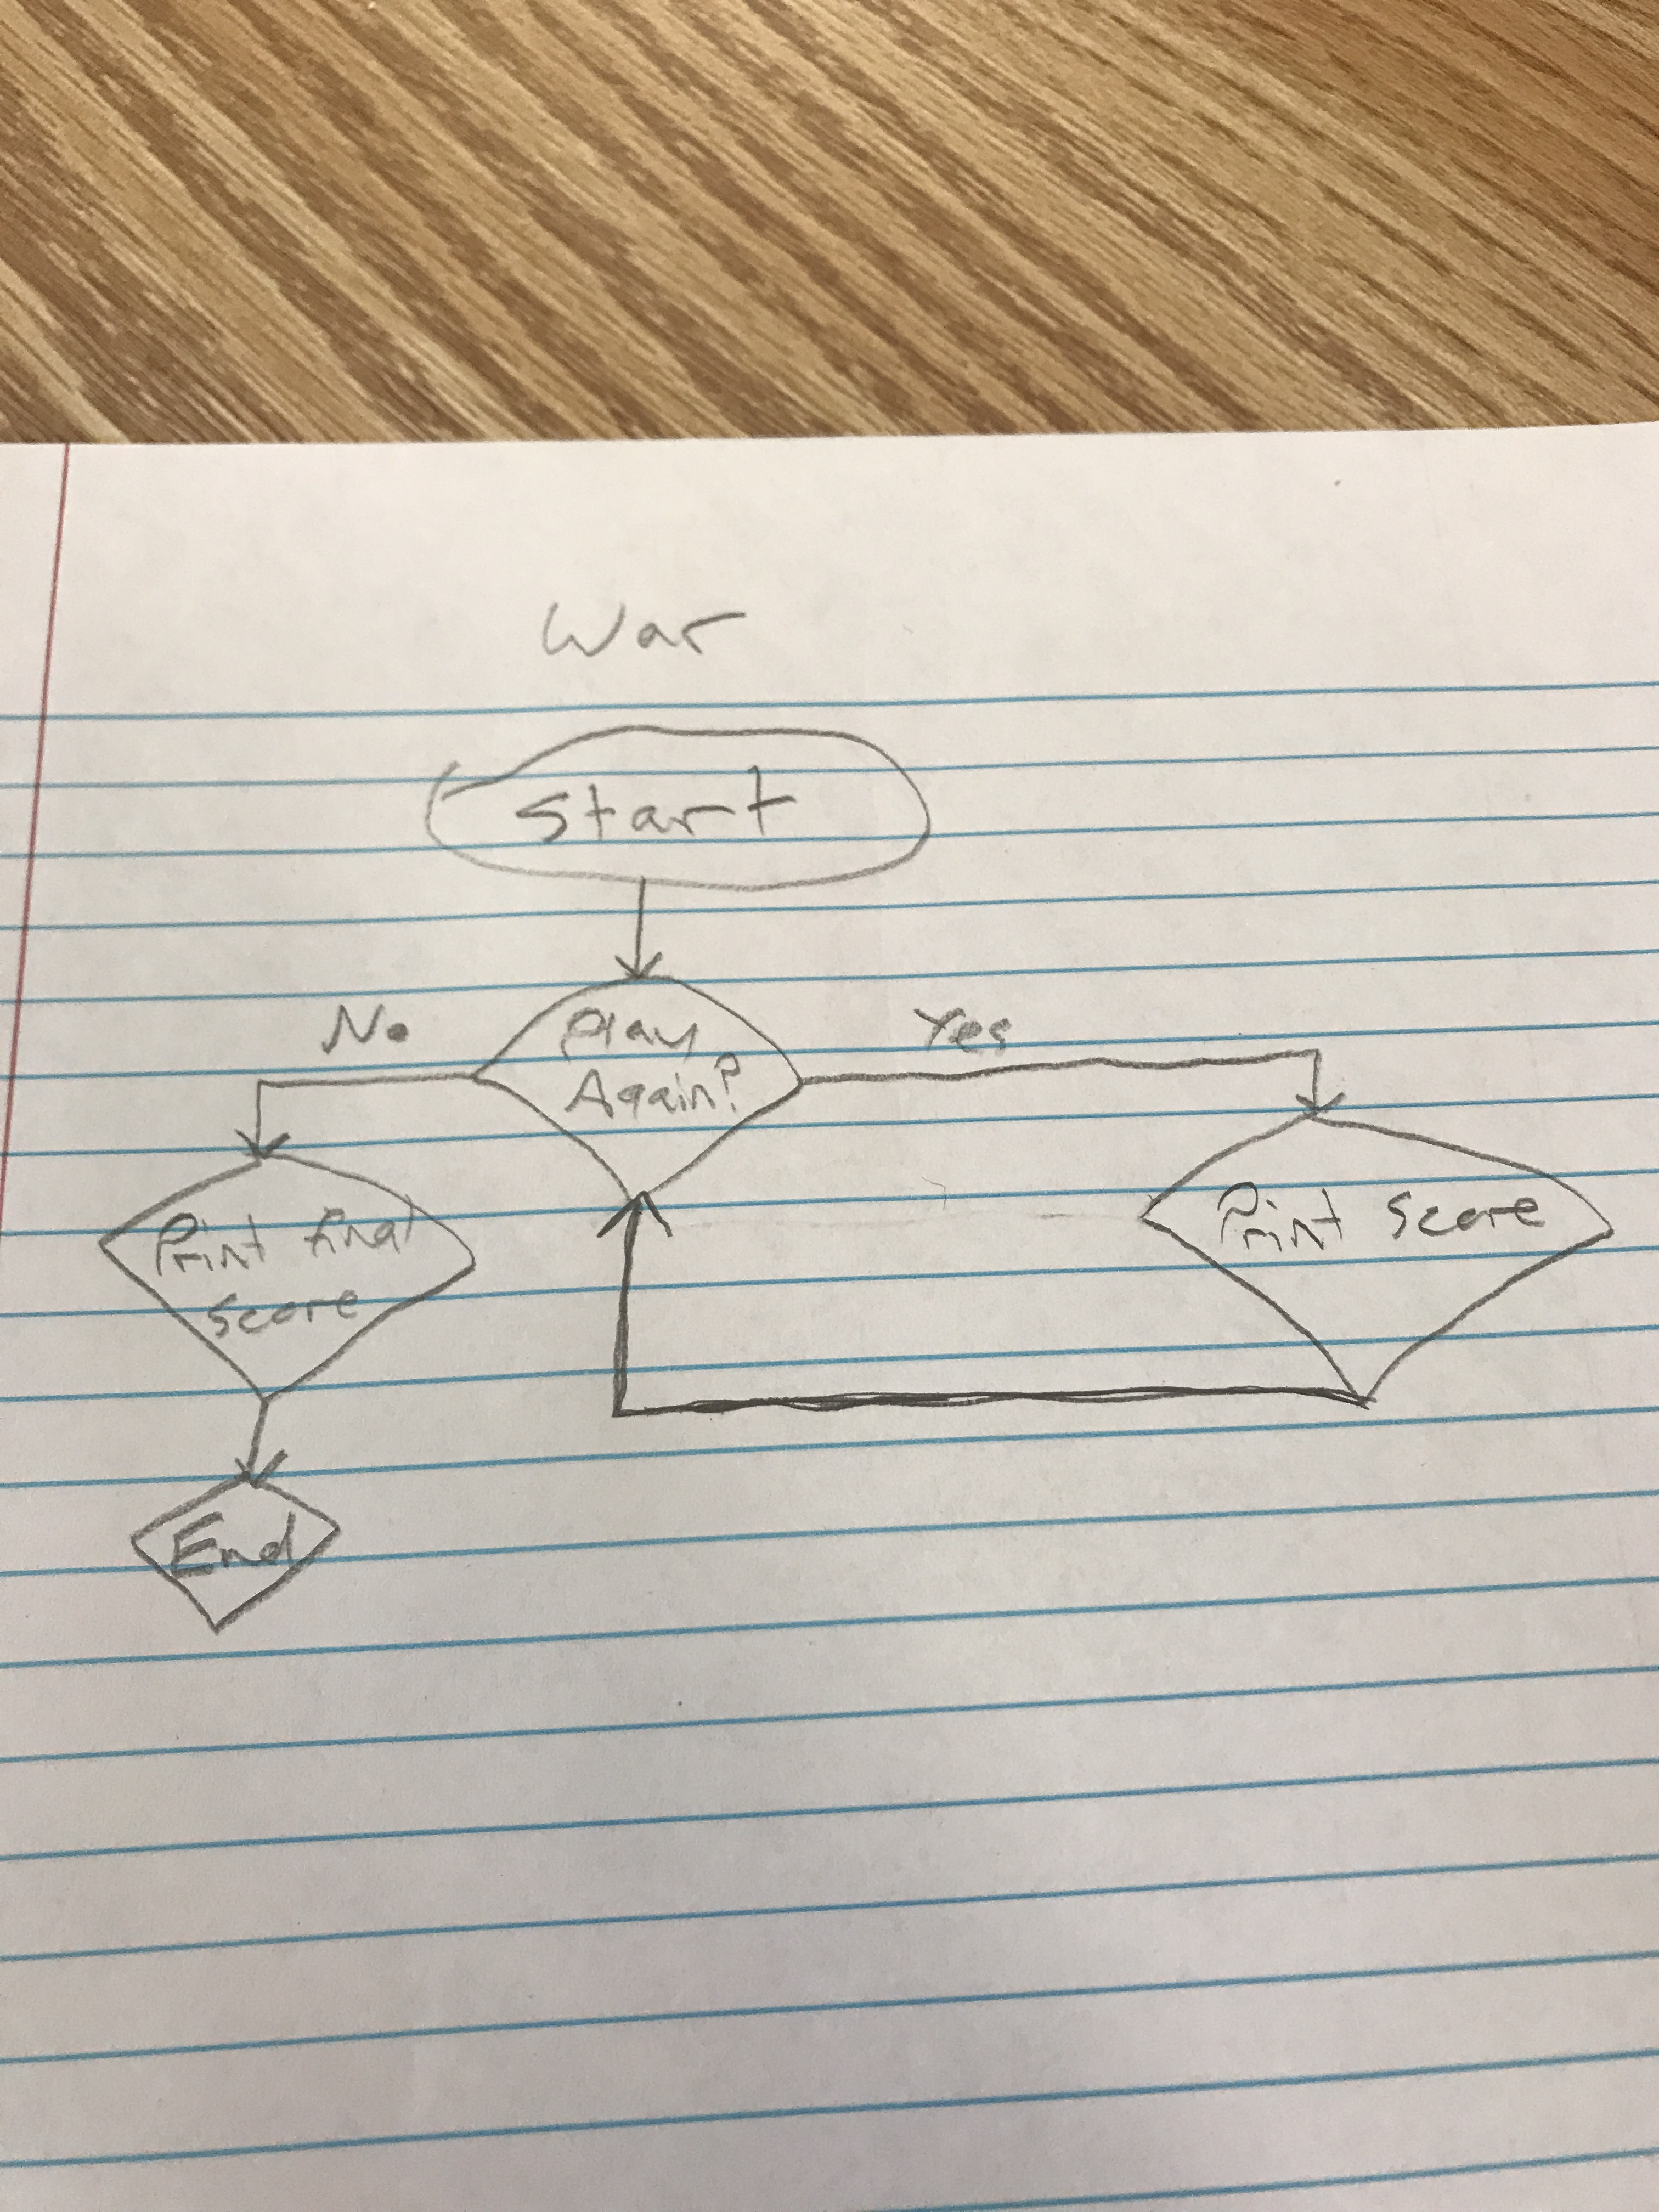 War
Start
No
Play
Again?
Yes
Print final
score
Print Score
End